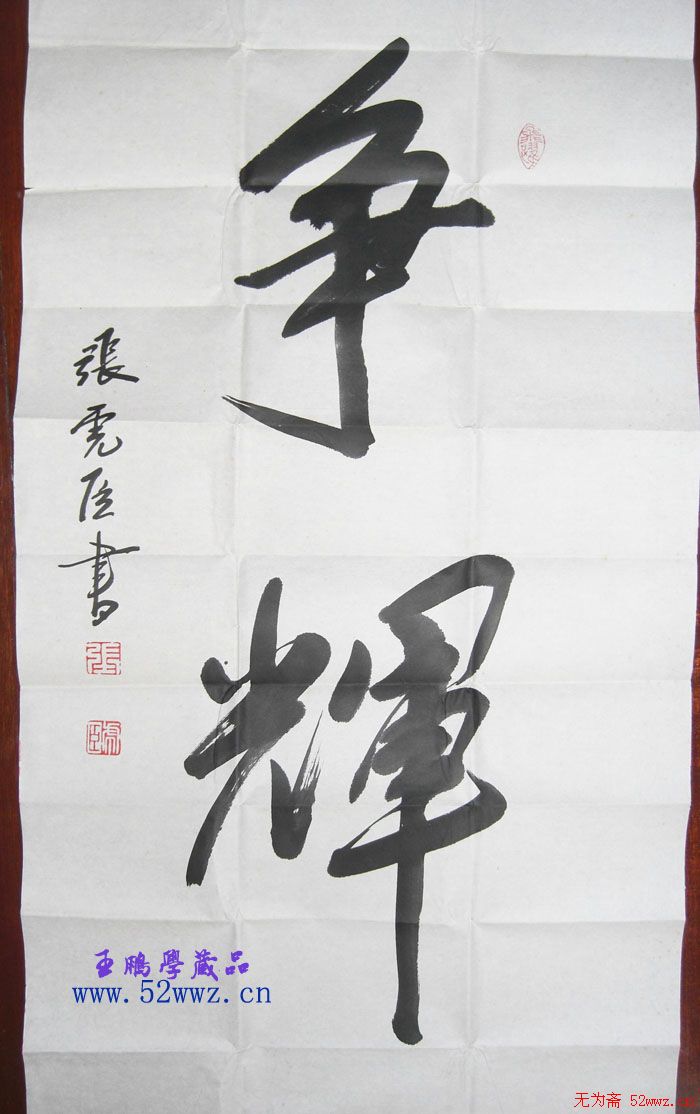 争輝
張虎臣書
張
虎臣
王鵬學藏品
www.52wwz.cn
无为斋 52wwz.cn